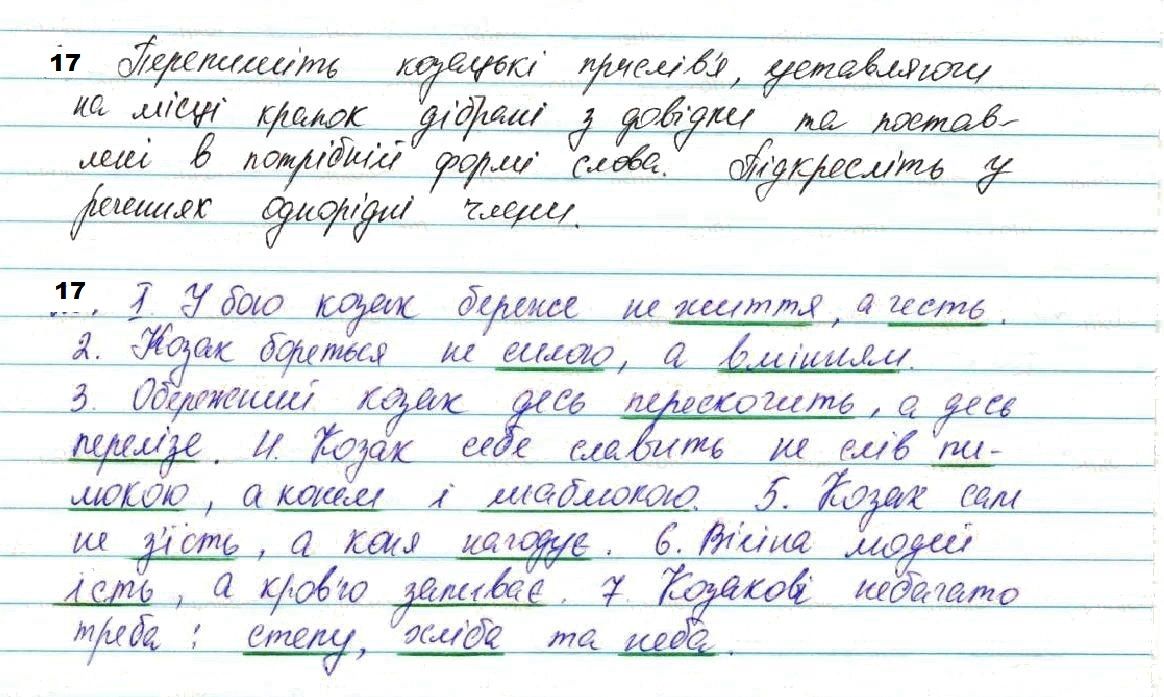 17 Перепишіть козацькі прислів'я, уставляючи
на місці крапок дібрані з довідки та постав-
лені в потрібній формі слова. Підкресліть у
реченнях однорідні члени.
17. 1. У бою козак береже не життя, а честь.
2. Козак бореться не силою, а вмінням.
3. Обережний козак десь перескочить, а десь
перелізе. 4. Козак себе славить не слів пи-
люкою, а конем і шаблюкою. 5. Козак сам
не з'їсть, а коня нагодує. 6. Війна людей
їсть, а кров'ю запиває. 7. Козакові небагато
треба: степу, хліба та неба.